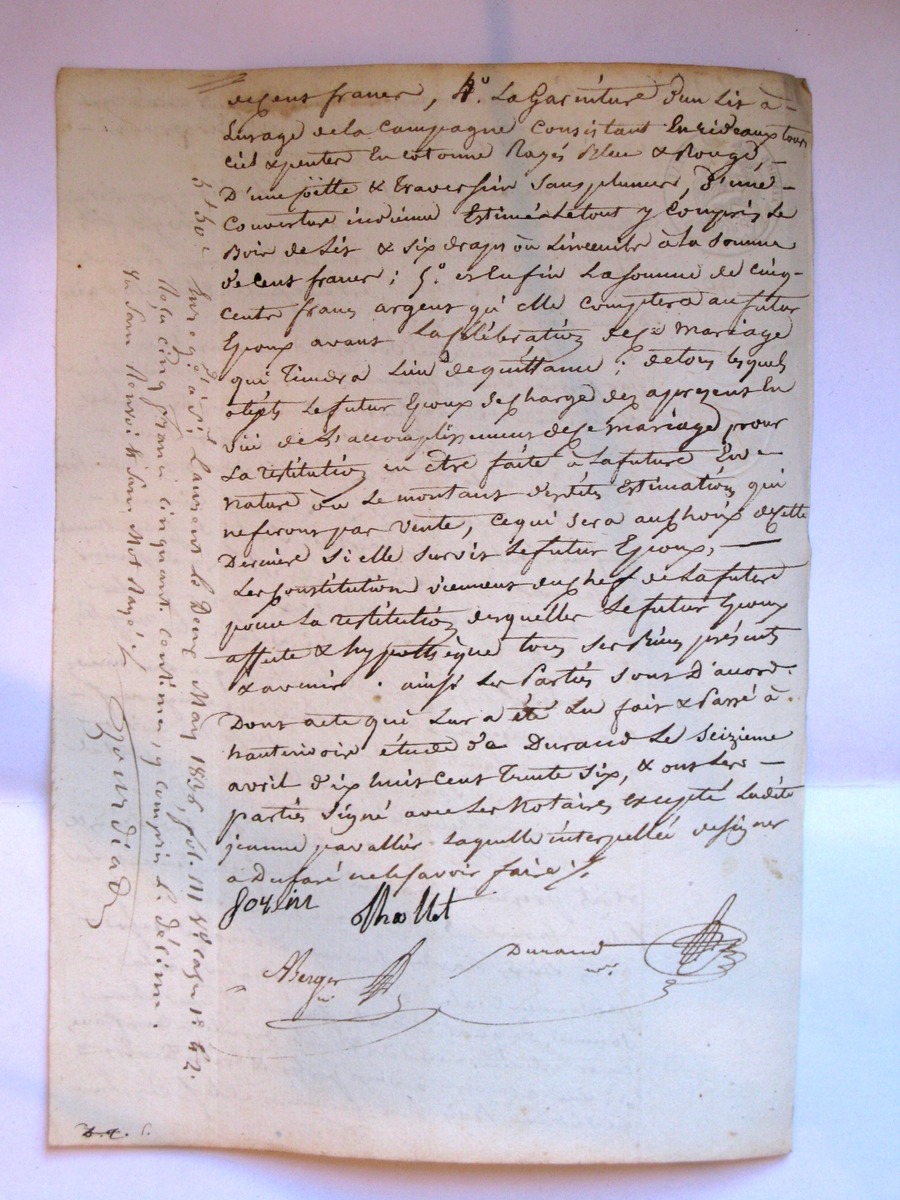 de Cent francs, 4°. La Garniture d'un Lit à
L'usage de la Campagne Consistant En rideaux tour
ciel & pentes En cotonne Rayés Bleu & Rouge,
D'une & Traversin Sans plumes, d'une
Couverture indienne Estimés Letout y Compris Le
Bois de Lit & Six draps ou Linceuils à La Somme
de Cent francs ; 5°. et Enfin La Somme de Cinq
Cents francs argent qu'elle Comptera au futur
Epoux avant La Célébration de Ce mariage
qui Tiendra Lieu de quittance ; de tous lesquels
objets Le futur Epoux Se Charge des aprésent En
de L'accomplissement de Ce mariage pour
La restitution en être faite à La future En
nature ou Le montant desdites Estimations qui
ne feront pas Vente, Ce qui Sera au Choix de Cette
Dernière Si elle Survit Le futur Epoux,
Les Constitutions viennent du Chef de La future
pour La restitution desquelles Le futur Epoux
affecte & hypothèque tous Ses Biens présents
& avenir. ainsi Les Parties Sont D'accord.
Dont acte qui Leur a été Lu fait & Passé à
hauterivoir étude de Durand Le Seizieme
avril dix huit Cent Trente Six, & ont Les
parties Signé avec Les Notaires excepté Ladite
jeanne pavallier Laquelle interpellée de Signer
a Duffaré ne le Savoir faire /.
Goyin Thollet
Durand nre.
ABerger nre
5f 50c
Enregé à St. Laurent le Deux May 1836, fol. 111 Vo Case 1 & 2.
Reçu cinq francs cinquante centimes, y compris le décime.
Un Seul Renvoi & Sans Mot Rayé.